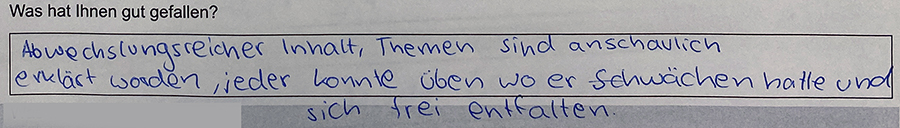 Was hat Ihnen gut gefallen?
Abwechslungsreicher Inhalt, Themen sind anschaulich
erklärt worden, jeder konnte üben wo er Schwächen hatte und
sich frei entfalten.